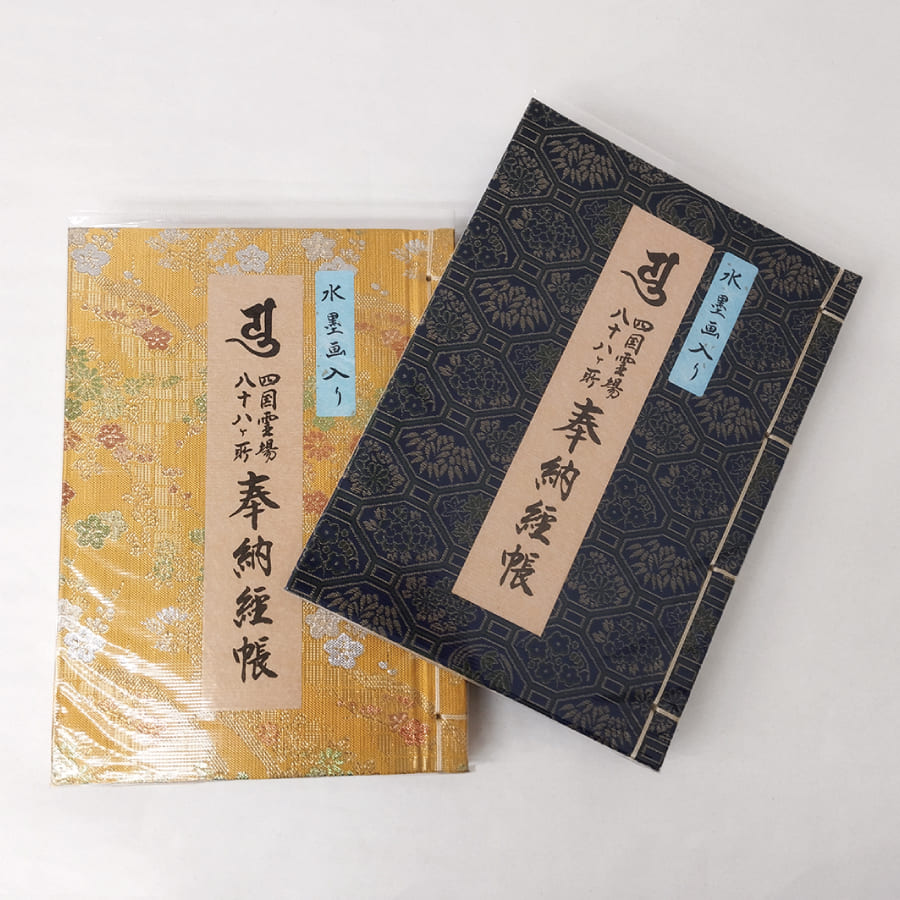 水墨画入り
四国霊場
八十八ヶ所
奉納經帳
水墨画入り
四国霊場
八十八ヶ所
奉納經帳